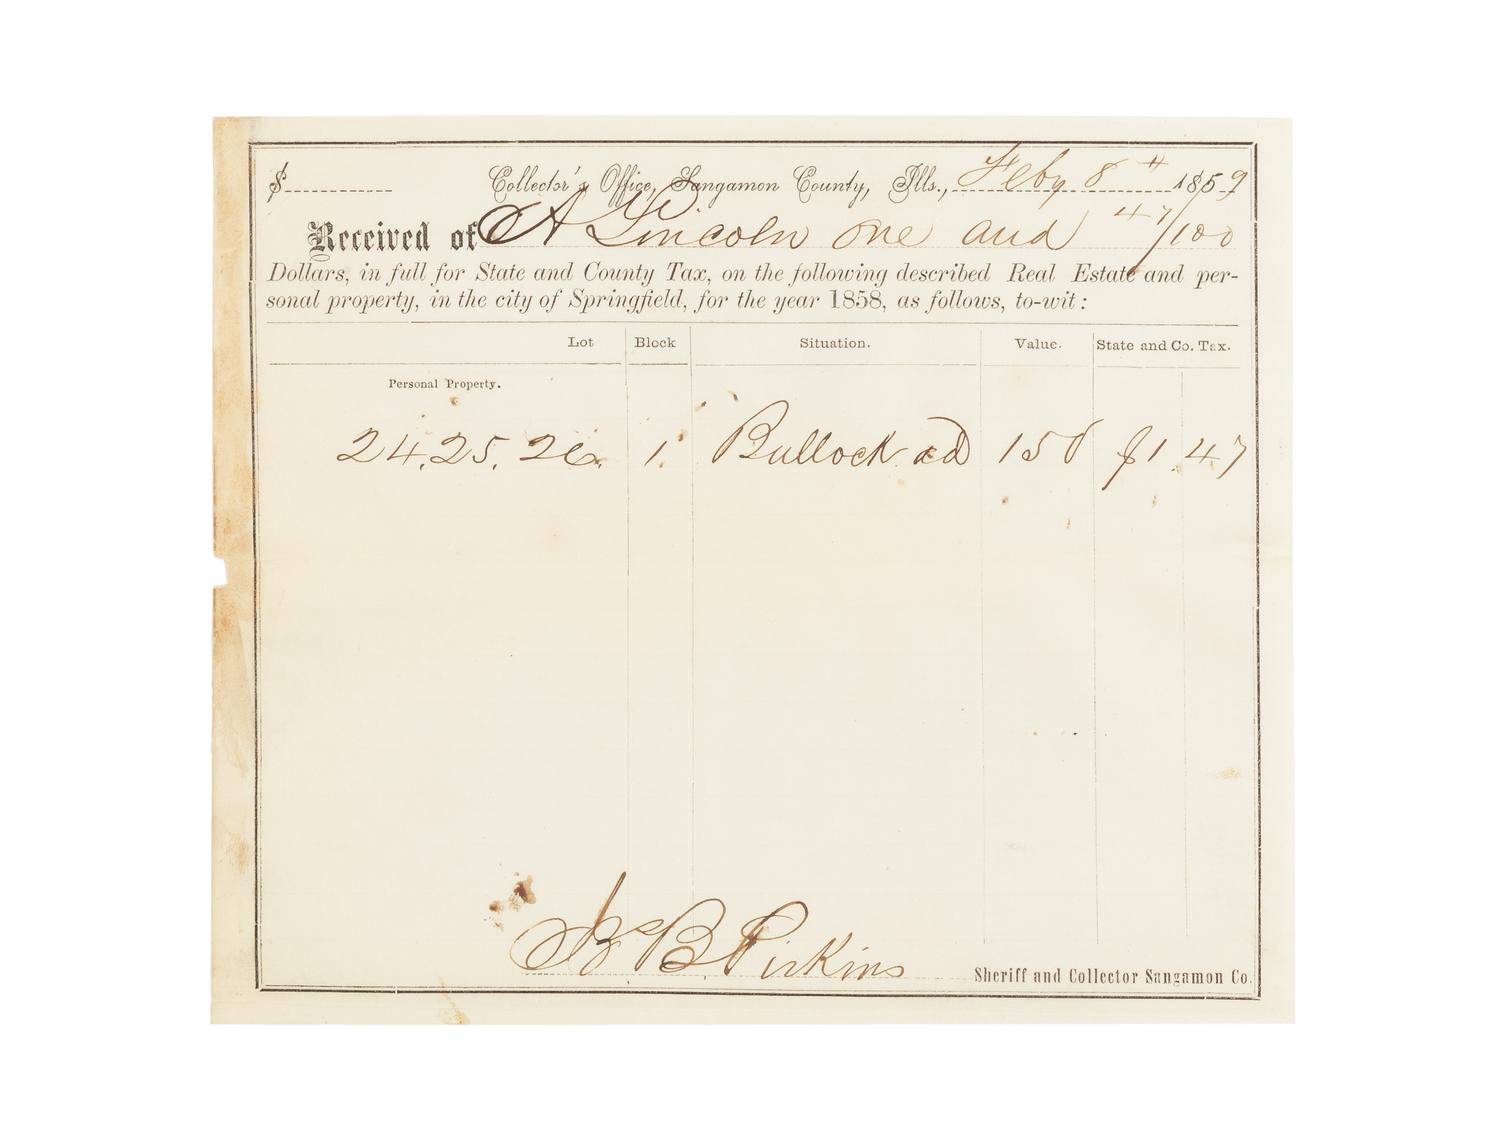 $ Collector's Office, Sangamon County, Ills., Feby 8" 1859
Received of A Lincoln one and 47/100
Dollars, in full for State and County Tax, on the following described Real Estate and per-
sonal property, in the city of Springfield, for the year 1858, as follows, to-wit:
Lot Block Situation. Value. State and Co. Tax.
Personal Property.
24. 25. 26. 1 Bullock ad 150 $1.47
B Pirkins Sheriff and Collector Sangamon Co.